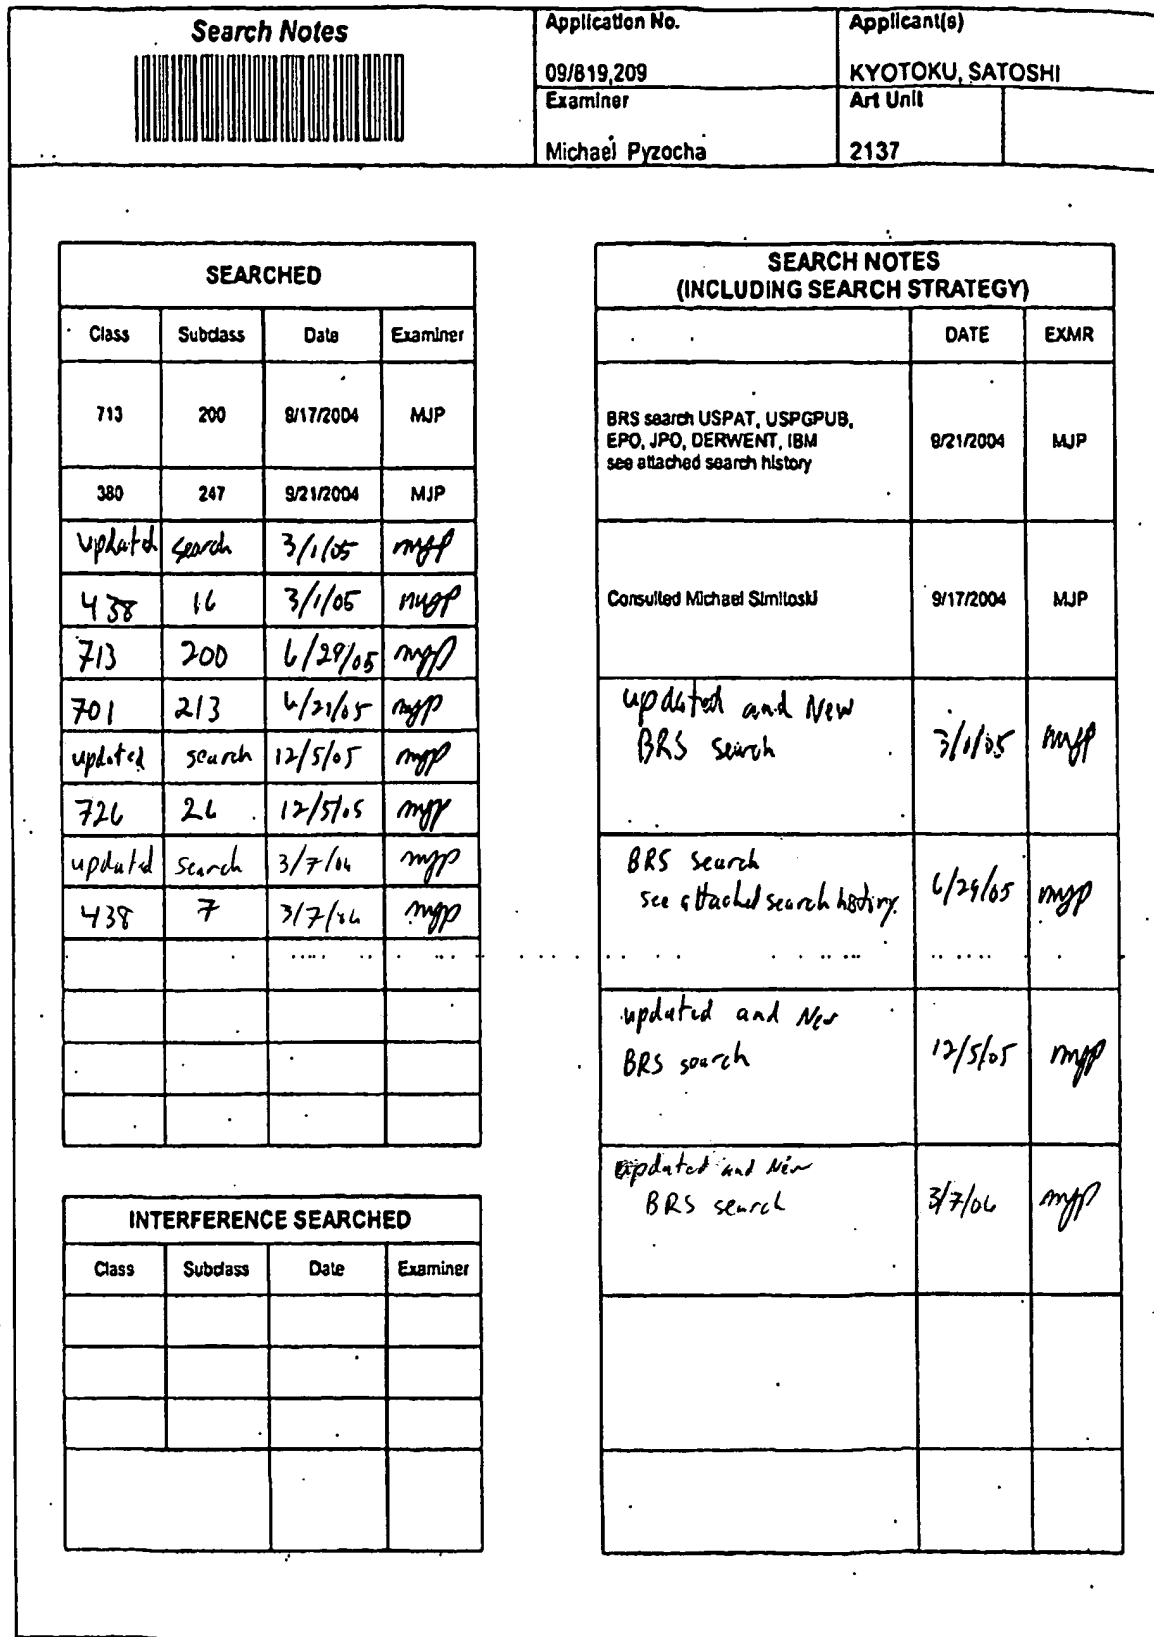 Search Notes
Application No.
09/819,209
Applicant(s)
KYOTOKU, SATOSHI
Examiner
Michael Pyzocha
Art Unit
2137
SEARCHED
Class Subclass Date Examiner
713 200 9/17/2004 MJP
380 247 9/21/2004 MJP
updated search 3/1/05 mjp
438 16 3/1/05 mjp
713 200 6/29/05 mjp
701 213 6/29/05 mjp
updated search 12/5/05 mjp
726 26 12/5/05 mjp
updated search 3/7/06 mjp
438 7 3/7/06 mjp
INTERFERENCE SEARCHED
Class Subclass Date Examiner
SEARCH NOTES
(INCLUDING SEARCH STRATEGY)
DATE EXMR
BRS search USPAT, USPGPUB,
EPO, JPO, DERWENT, IBM
see attached search history
9/21/2004 MJP
Consulted Michael Simitoski 9/17/2004 MJP
updated and New
BRS search
3/1/05 mjp
BRS search
see attached search history.
6/29/05 mjp
updated and New
BRS search
12/5/05 mjp
updated and New
BRS search
3/7/06 mjp